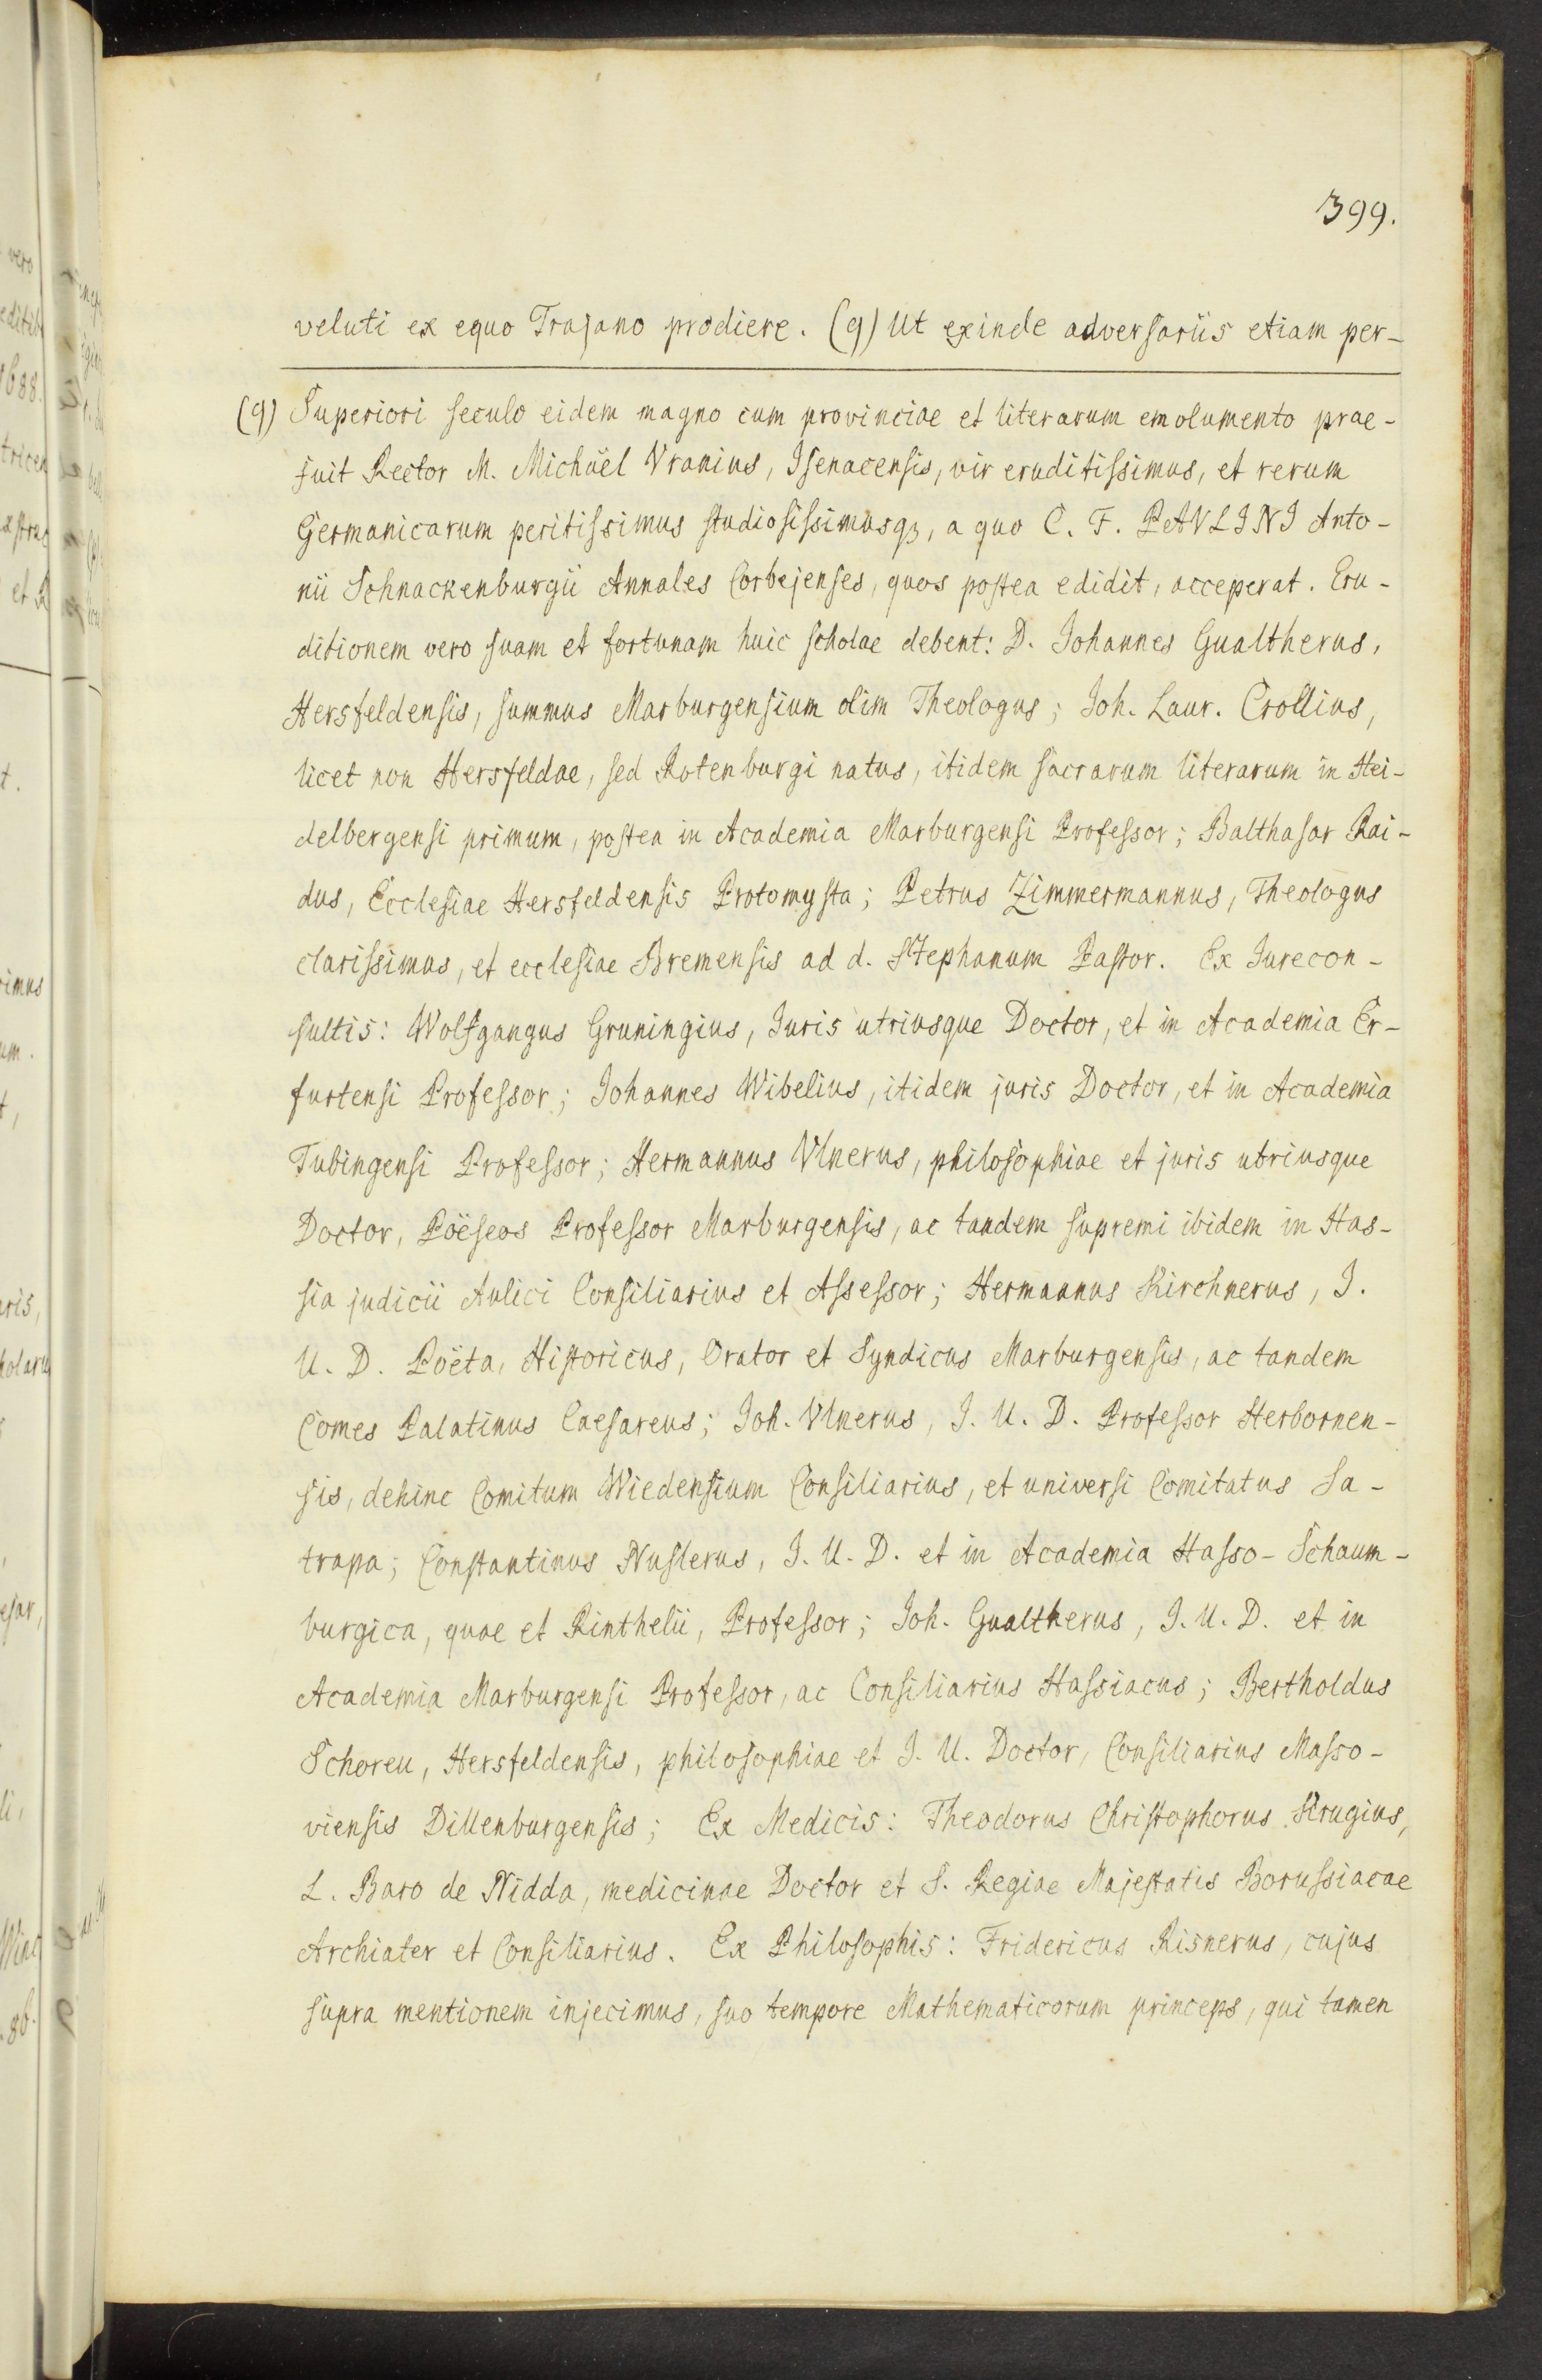 399.
veluti ex equo Trajano prodiere. (q) Ut exinde adversariis etiam per-
(q) Superiori seculo eidem magno cum provinciae et literarum emolumento prae-
fuit Rector M. Michaël Vranius, Isenacensis, vir eruditissimus, et rerum
Germanicarum peritissimus studiosissimusqz, a quo C. F. PAVLINI Anto-
nii Schnackenburgii Annales Corbejenses, quos postea edidit, acceperat. Eru-
ditionem vero suam et fortunam huic scholae debent: D. Johannes Gualtherus,
Hersfeldensis, summus Marburgensium olim Theologus; Joh. Laur. Crollius,
licet non Hersfeldae, sed Rotenburgi natus, itidem sacrarum literarum in Hei-
delbergensi primum, postea in Academia Marburgensi Professor; Balthasar Rai-
dus, Ecclesiae Hersfeldensis Protomysta; Petrus Zimmermannus, Theologus
clarissimus, et ecclesiae Bremensis ad d. Stephanum Pastor. Ex Jurecon-
sultis: Wolfgangus Gruningius, Juris utriusque Doctor, et in Academia Er-
furtensi Professor; Johannes Wibelius, itidem juris Doctor, et in Academia
Tubingensi Professor; Hermannus Vlnerus, philosophiae et juris utriusque
Doctor, Poëseos Professor Marburgensis, ac tandem supremi ibidem in Has-
sia judicii Aulici Consiliarius et Assessor; Hermannus Kirchnerus, J.
U. D. Poëta, Historicus, Orator et Syndicus Marburgensis, ac tandem
Comes Palatinus Caesareus; Joh. Vlnerus, J. U. D. Professor Herbornen-
sis, dehinc Comitum Wiedensium Consiliarius, et universi Comitatus Sa-
trapa; Constantinus Nuslerus, J. U. D. et in Academia Hasso-Schaum-
burgica, quae et Rinthelii, Professor; Joh. Gualtherus, J. U. D. et in
Academia Marburgensi Professor, ac Consiliarius Hassiacus; Bertholdus
Schoreu, Hersfeldensis, philosophiae et J. U. Doctor, Consiliarius Masso-
viensis Dillenburgensis; Ex Medicis: Theodorus Christophorus Krugius,
L. Baro de Nidda, medicinae Doctor et S. Regiae Majestatis Borussiacae
Archiater et Consiliarius. Ex Philosophis: Fridericus Risnerus, cujus
supra mentionem injecimus, suo tempore Mathematicorum princeps, qui tamen